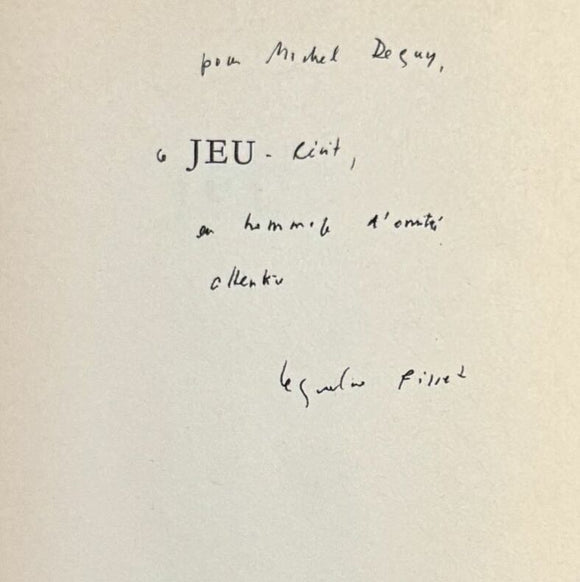 pour Michel Deguy,
ce JEU - écrit,
en hommage d'amitié
attentive